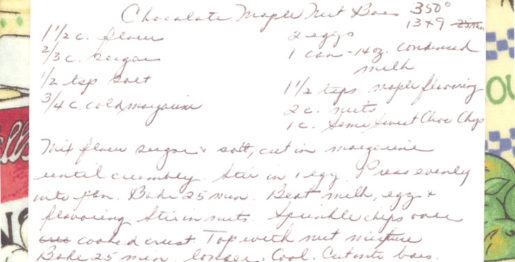 Chocolate Maple Nut Bars 350°
13 x 9
1 1/2 c. flour
2/3 c. sugar
1/2 tsp salt
3/4 c. cold margarine
2 eggs
1 can - 14 oz. condensed
milk
1 1/2 tsps maple flavoring
2 c. nuts
1 c. Semi Sweet Choc Chips
Mix flour sugar & salt, cut in margarine
until crumbly. Stir in 1 egg. Press evenly
into pan. Bake 25 min. Beat milk, egg &
flavoring Stir in nuts. Sprinkle chips over
cooked crust Top with nut mixture
Bake 25 min longer. Cool. Cut into bars.